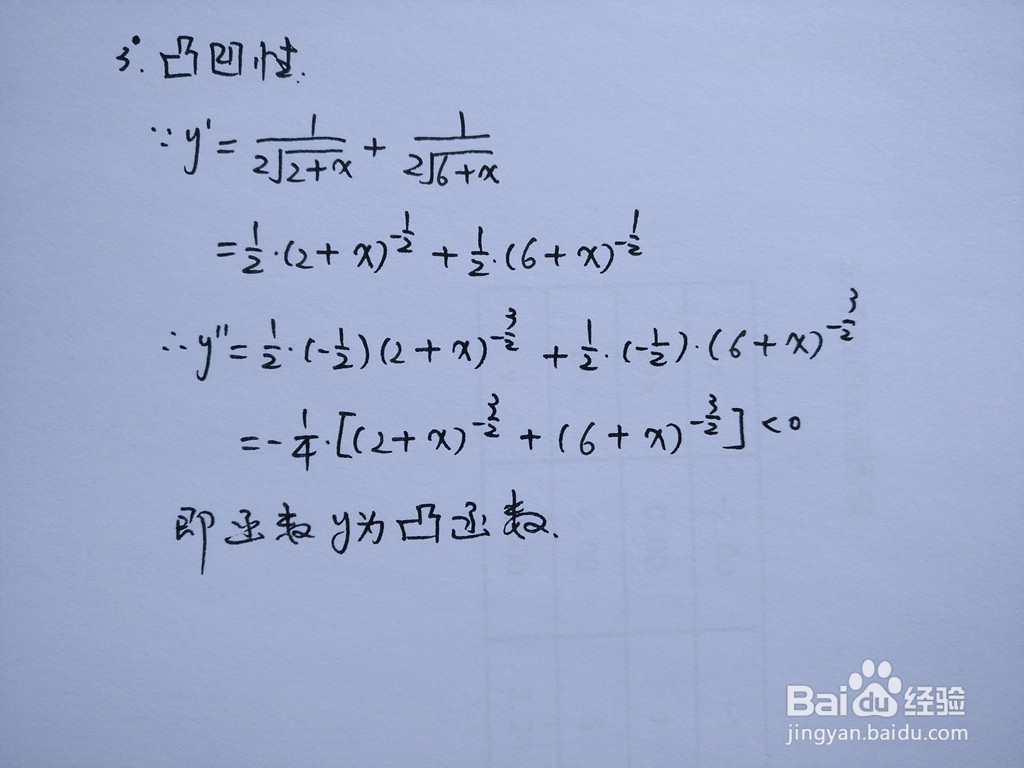 3°. 凸凹性.
∵ y' = 1/(2√(2+x)) + 1/(2√(6+x))
= 1/2·(2+x)^(-1/2) + 1/2·(6+x)^(-1/2)
∴ y'' = 1/2·(-1/2)(2+x)^(-3/2) + 1/2·(-1/2)·(6+x)^(-3/2)
= -1/4·[(2+x)^(-3/2) + (6+x)^(-3/2)] <0
即函数 y为凸函数.
Baidu经验
jingyan.baidu.com